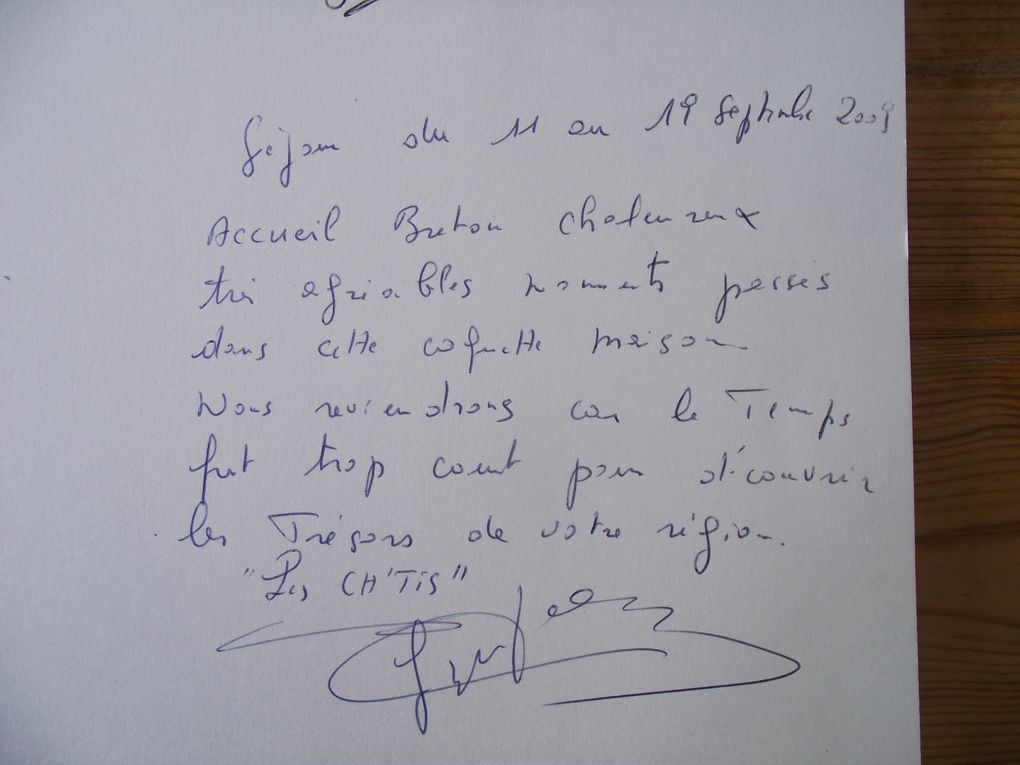 Séjour du 11 au 19 Septembre 2009
Accueil Breton chaleureux
très agréables moments passés
dans cette coquette maison
Nous reviendrons car le Temps
fut trop court pour découvrir
les Trésors de votre région.
"Les CH'TIS"